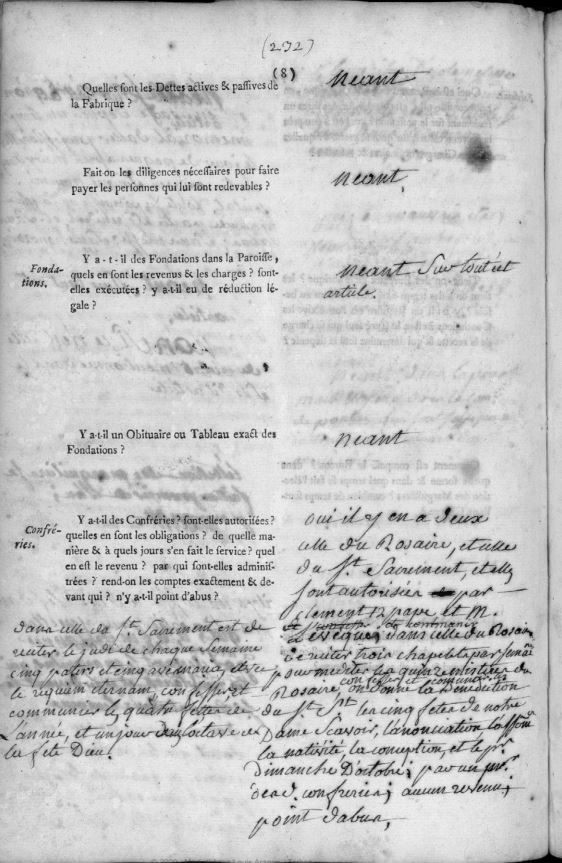 (232)
(8)
Quelles sont les Dettes actives & passives de
la Fabrique ?
neant
Fait-on les diligences nécessaires pour faire
payer les personnes qui lui sont redevables ?
neant,
Fonda-
tions.
Y a-t-il des Fondations dans la Paroisse,
quels en sont les revenus & les charges ? sont-
elles exécutées ? y a-t-il eu de réduction lé-
gale ?
neant sur tout cet
article.
Y a-t-il un Obituaire ou Tableau exact des
Fondations ?
neant
Confré-
ries.
Y a-t-il des Confréries ? sont-elles autorisées ?
quelles en sont les obligations ? de quelle ma-
nière & à quels jours s'en fait le service ? quel
en est le revenu ? par qui sont-elles adminis-
trées ? rend-on les comptes exactement & de-
vant qui ? n'y a-t-il point d'abus ?
oui il y en a deux
celle du Rosaire, et celle
du St. Sacrement, et elles
sont autorisées par
clement 12 pape, et M.
L'eveque; dans celle du Rosaire
de reciter trois chapelets par semaine
pour mediter les quinze misteres du
confesser et communier
Rosaire, on donne la Benediction
du St. Srt les cinq fetes de notre
Dame Scavoir, l'anonciation l'assomn
la nativité, la conception, et le pr.
Dimanche D'octobre; par un
confreries; aucun revenu;
point d'abus,
dans celle du St. Sacrement est de
reciter le judi de chaque semaine
cinq paters et cinq ave maria, et
le requiem eternam, confesser et
communier les quatre fettes de
L'année, et un jour dans l'octave de
la fete Dieu.